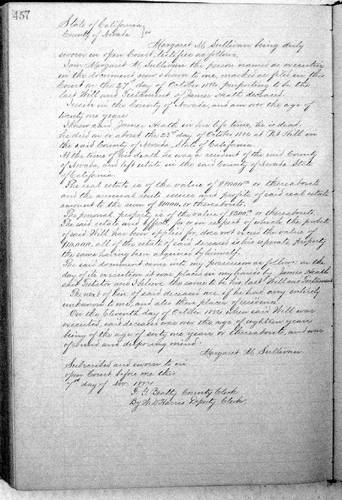 457
State of California
County of Nevada } ss
Margaret M. Sullivan being duly
sworn in open Court, testifies as follows:
I am Margaret M. Sullivan the person named as executrix
in the document now shown to me, marked as filed in this
Court on the 27th day of October 1884 purporting to be the
last Will and Testament of James Heath deceased.
I reside in the County of Nevada, and am over the age of
twenty one years.
I knew said James Heath in his life time, he is dead.
he died on or about the 23d day of October 1884 at Red Hill in
the said County of Nevada State of California
At the time of his death he was a resident of the said County
of Nevada, and left estate in the said County of Nevada State
of California.
The real estate is of the value of or thereabouts
and the annual rents issues and profits of said real estate
amount to the sum of or thereabouts.
The personal property is of the value of or thereabouts.
The said estate and effects for or in respect of which the probate
of said Will has been applied for, does not exceed the value of
all of the estate of said deceased is his separate property
the same having been acquired by himself.
The said document came into my possession as follows: on the
day of its execution it was placed in my hands by James Heath
said testator, and I believe the same to be his last Will and Testament
The next of kin of said deceased are if he had any entirely
unknown to me, and also their places of residence.
On the Eleventh day of October 1884 when said Will was
executed, said deceased was over the age of eighteen years
being of the age of sixty one years or thereabouts, and was
of sound and disposing mind.
Margaret M. Sullivan
Subscribed and sworn to in
open Court before me this
7th day of Nov. 1884
Beatty County Clerk
By Harris Deputy Clerk